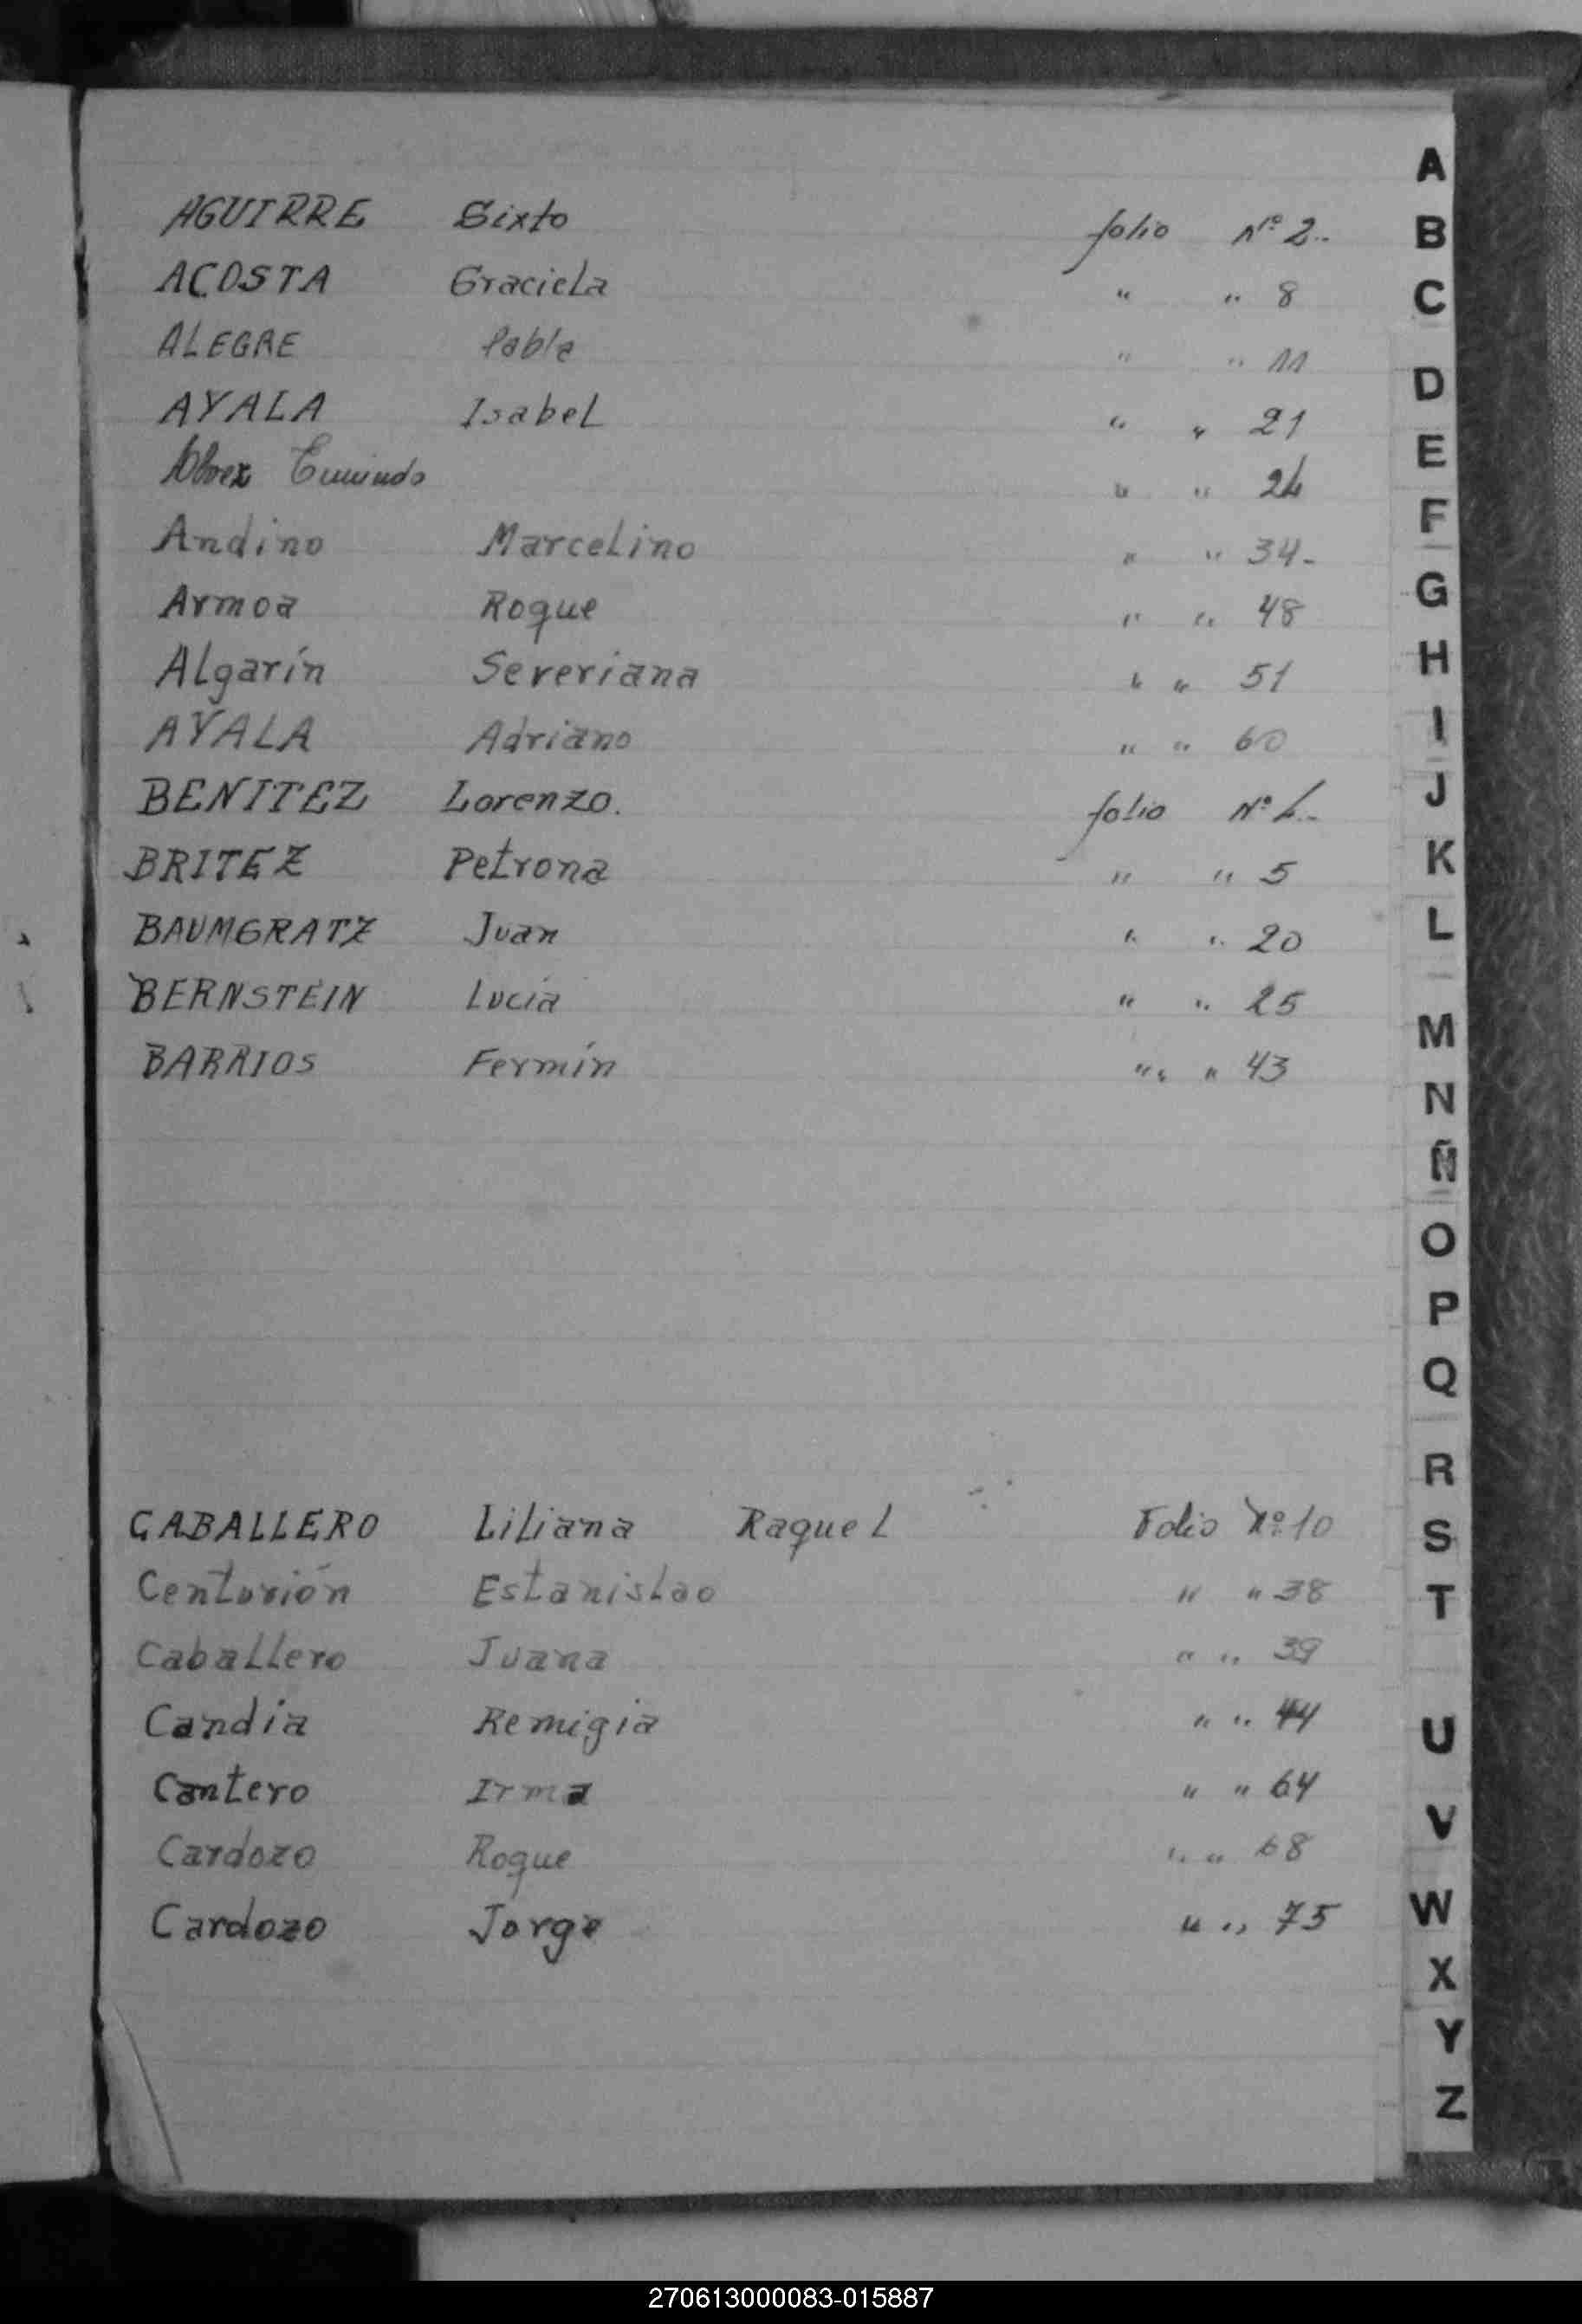 AGUIRRE Sixto folio Nº 2..
ACOSTA Graciela " " 8
ALEGRE Pabla " " 11
AYALA Isabel " " 21
" " 24
Andino Marcelino " " 34-
Armoa Roque " " 48
Algarín Severiana " " 51
AYALA Adriano " " 60
BENITEZ Lorenzo. folio Nº 4..
BRITEZ Petrona " " 5
BAUMGRATZ Juan " " 20
BERNSTEIN Lucía " " 25
BARRIOS Fermín " " 43
CABALLERO Liliana Raquel Folio Nº 10
Centurión Estanislao " " 38
Caballero Juana " " 39
Candia Remigia " " 44
Cantero Irma " " 64
Cardozo Roque " " 68
Cardozo Jorge " " 75
A
B
C
D
E
F
G
H
I
J
K
L
M
N
Ñ
O
P
Q
R
S
T
U
V
W
X
Y
Z
270613000083-015887